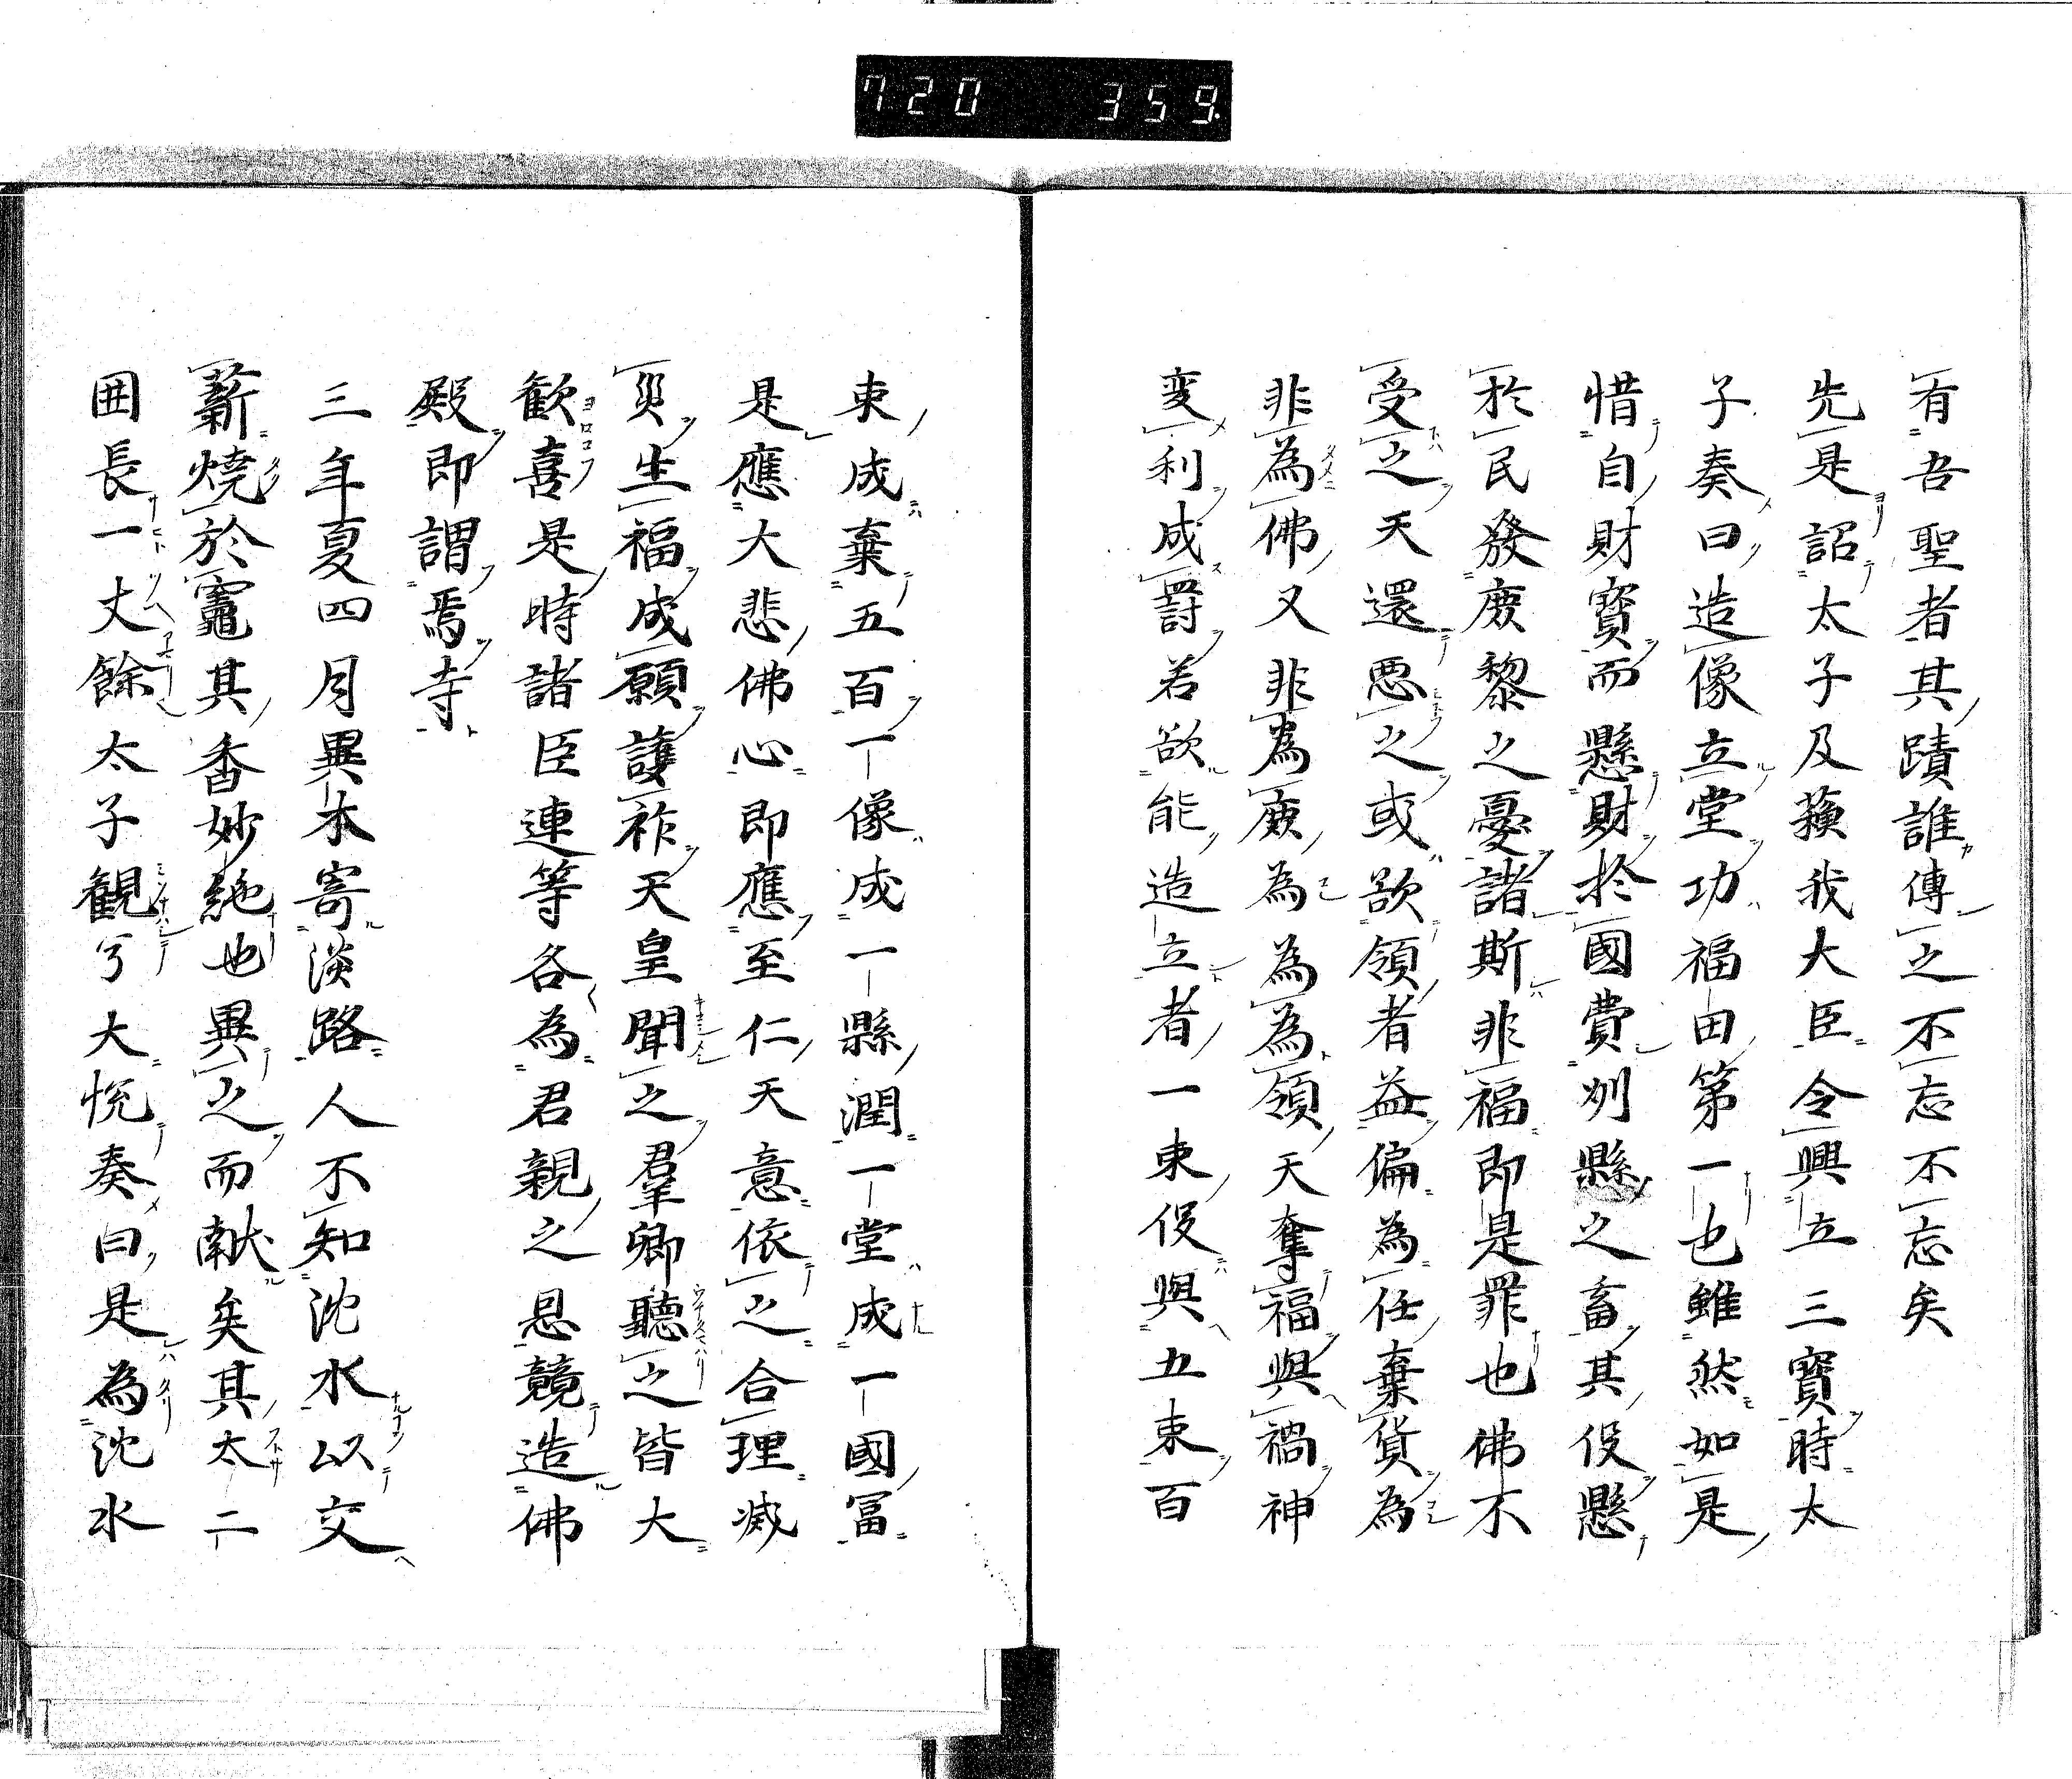 720 359
有吾聖者其蹟誰傳之不忘不忘矣
先是詔太子及蘓我大臣令興立三寳時太
子奏曰造像立堂功福由第一也雖然如是
惜自財寳而懸財於國費州縣之畜其役懸
於民發庻黎之憂諸斯非福即是罪也佛不
受之天還惡之或欲領者益偏為任棄貨為
非為佛又非為庻為為為領天奪福與禍神
変利成罸若欲能造立者一束役與五束百
束成棄五百一像成一縣潤一堂成一國冨
是應大悲佛心即應至仁天意依之合理滅
災生福成願護祚天皇聞之羣卿聽之皆大
歓喜是時諸臣連等各為君親之恩競造佛
殿即謂焉寺
三年夏四月異木寄淡路人不知沈水以交
薪燒於竈其香妙絶也異之而献矣其太二
囲長一丈餘太子観兮大恱奏曰是為沈水